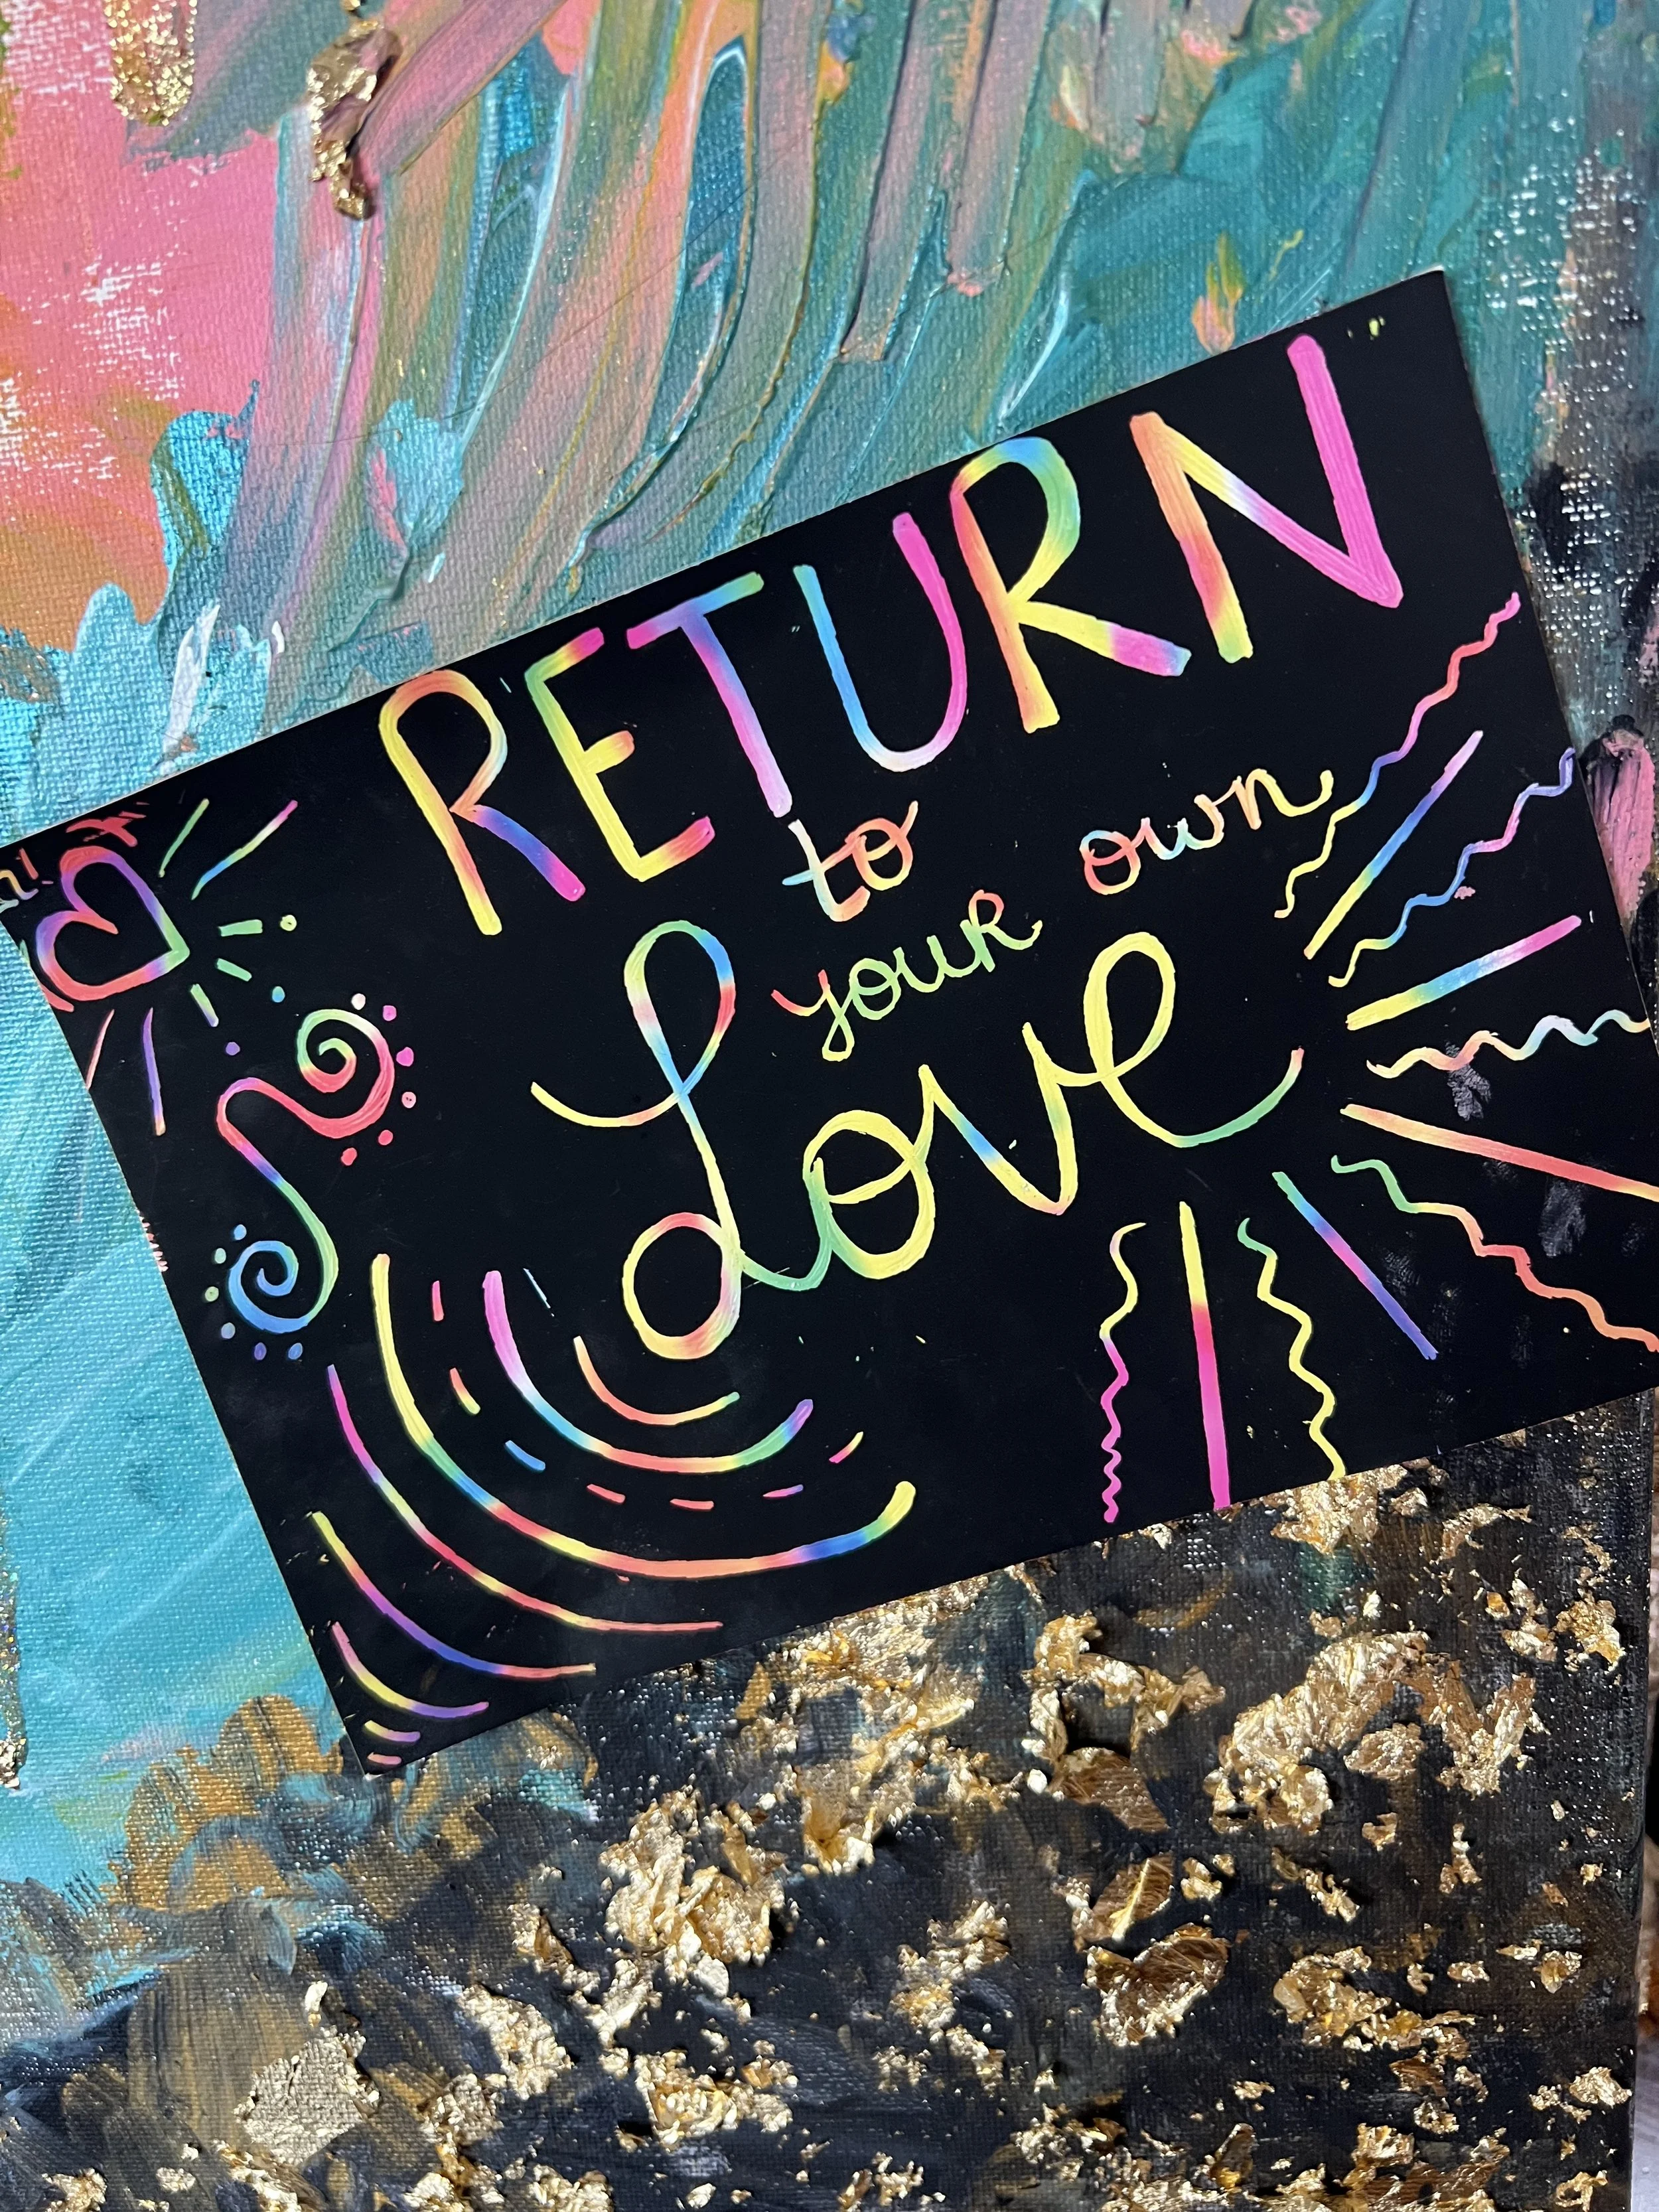 RETURN
to
your own
Love